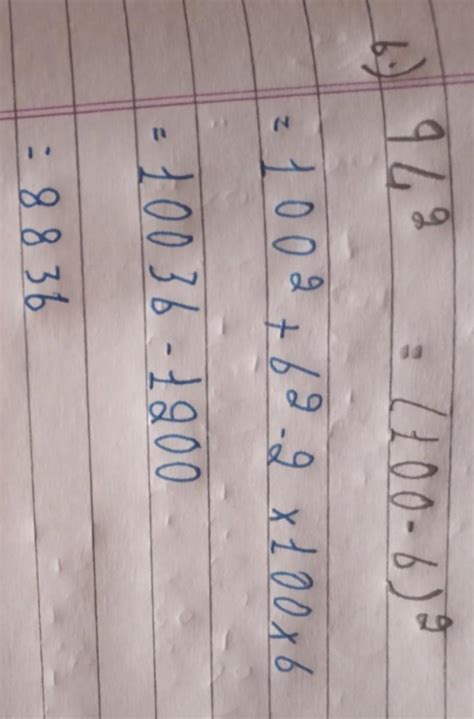 b.) 94² = (100-6)²
= 100² + 6² - 2 × 100 × 6
= 10036 - 1200
= 8836